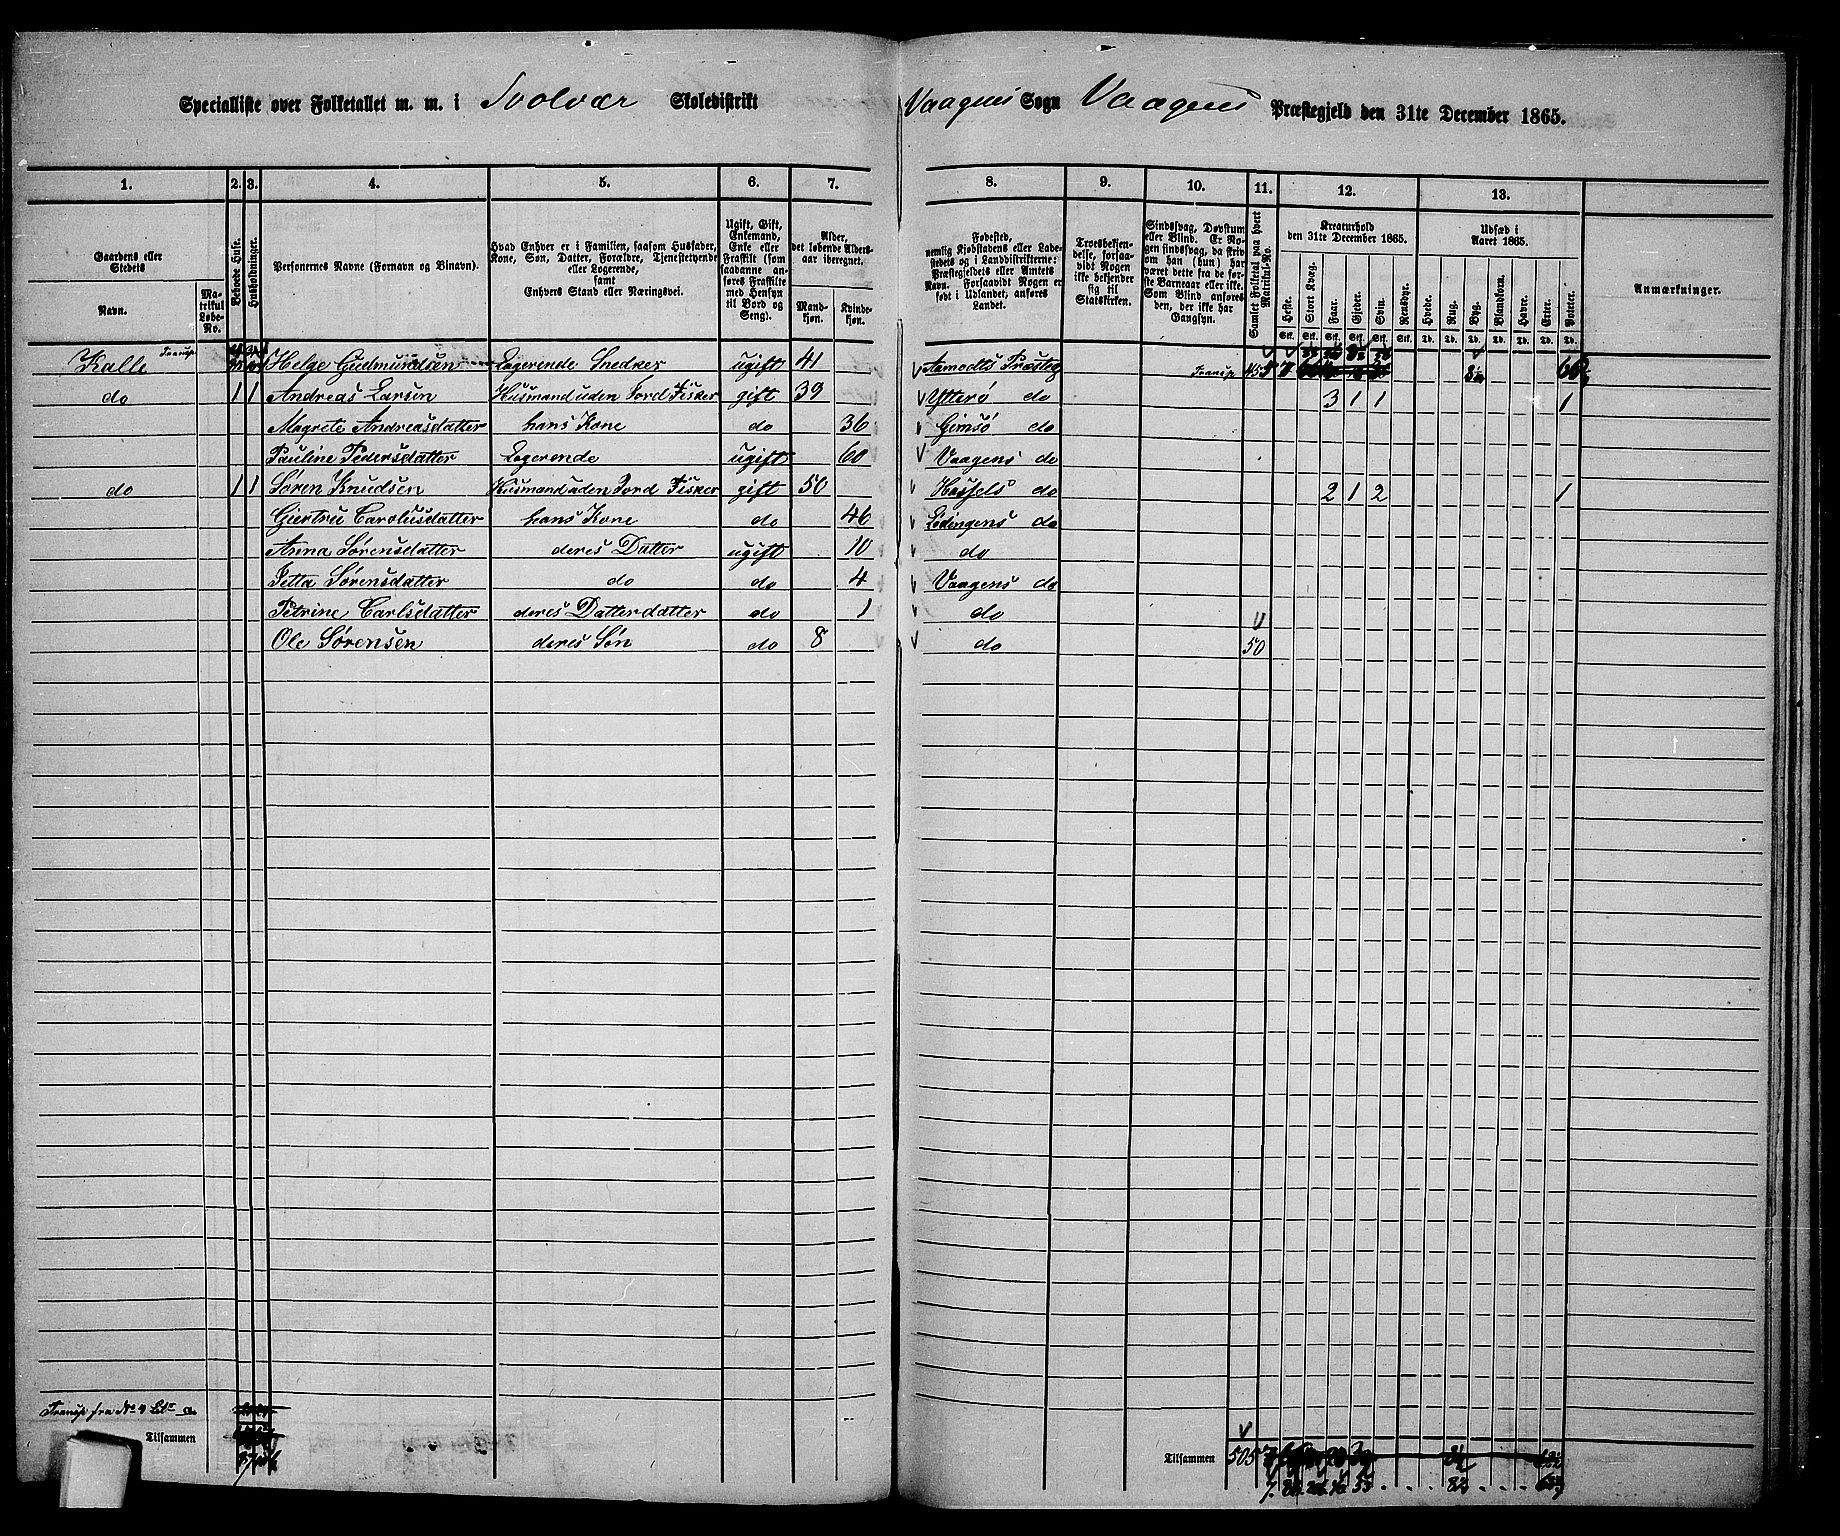 Specialliste over Folketallet m. m. i Svolvær Skoledistrikt Vaagens Sogn Vaagens Præstegjeld den 31te December 1865.
1. 2. 3. 4. 5. 6. 7. 8. 9. 10. 11. 12. 13.
Gaardens eller Stedets
Navn.
Matrikul Løbe-No.
Beboede Huse.
Husholdninger.
Personernes Navne (Fornavn og Binavn).
Hvad Enhver er i Familien, saasom Husfader, Kone, Søn, Datter, Forældre, Tjenestetyende eller Logerende, samt Enhvers Stand eller Næringsvei.
Ugift, Gift, Enkemand, Enke eller Fraskilt (som saadanne anføres Fraskilte med Hensyn til Bord og Seng).
Alder, det løbende Alders-aar iberegnet.
Mand-kjøn.
Kvinde-kjøn.
Fødested, nemlig Kjøbstadens eller Ladestedets og i Landdistrikterne: Præstegjeldets eller Amtets Navn. Forsaavidt Nogen er født i Udlandet, anføres Landet.
Troesbekjendelse, forsaavidt Nogen ikke bekjender sig til Statskirken.
Sindssvag, Døvstum eller Blind. Er Nogen sindssvag, da skriv om han (hun) har været dette fra de første Barneaar eller ikke. Som Blind anføres den, der ikke har Gangsyn.
Samlet Folketal paa hvert Matrikul-No.
Kreaturhold den 31te December 1865.
Heste. Stort Kvæg. Faar. Gjeder. Svin. Rensdyr.
Stk. Stk. Stk. Stk. Stk. Stk.
Udsæd i Aaret 1865.
Hvede. Rug. Byg. Blandkorn. Havre. Erter. Poteter.
Td. Td. Td. Td. Td. Td. Td.
Anmærkninger.
Kalle Transp Helge Gudmundsen Logerende Snedker ugift 41 Aamodts Præsteg Transp
do 1 1 Andreas Larsen Husmand uden Jord Fisker gift 39 Ytterø do 3 1 1 1
Magrete Andreasdatter hans Kone do 36 Gimsø do
Pauline Pedersdatter Logerende ugift 60 Vaagens do
do 1 1 Søren Knudsen Husmand uden Jord Fisker gift 50 Hassels do 2 1 2 1
Giertru Carolusdatter hans Kone do 46 Lødingens do
Anna Sørensdatter deres Datter ugift 10 do
Jetta Sørensdatter do do 4 Vaagens do
Petrine Carlsdatter deres Datterdatter do 1 do
Ole Sørensen deres Søn do 8 do 50
Transp fra No 4 Ltr a
Tilsammen
Tilsammen 505